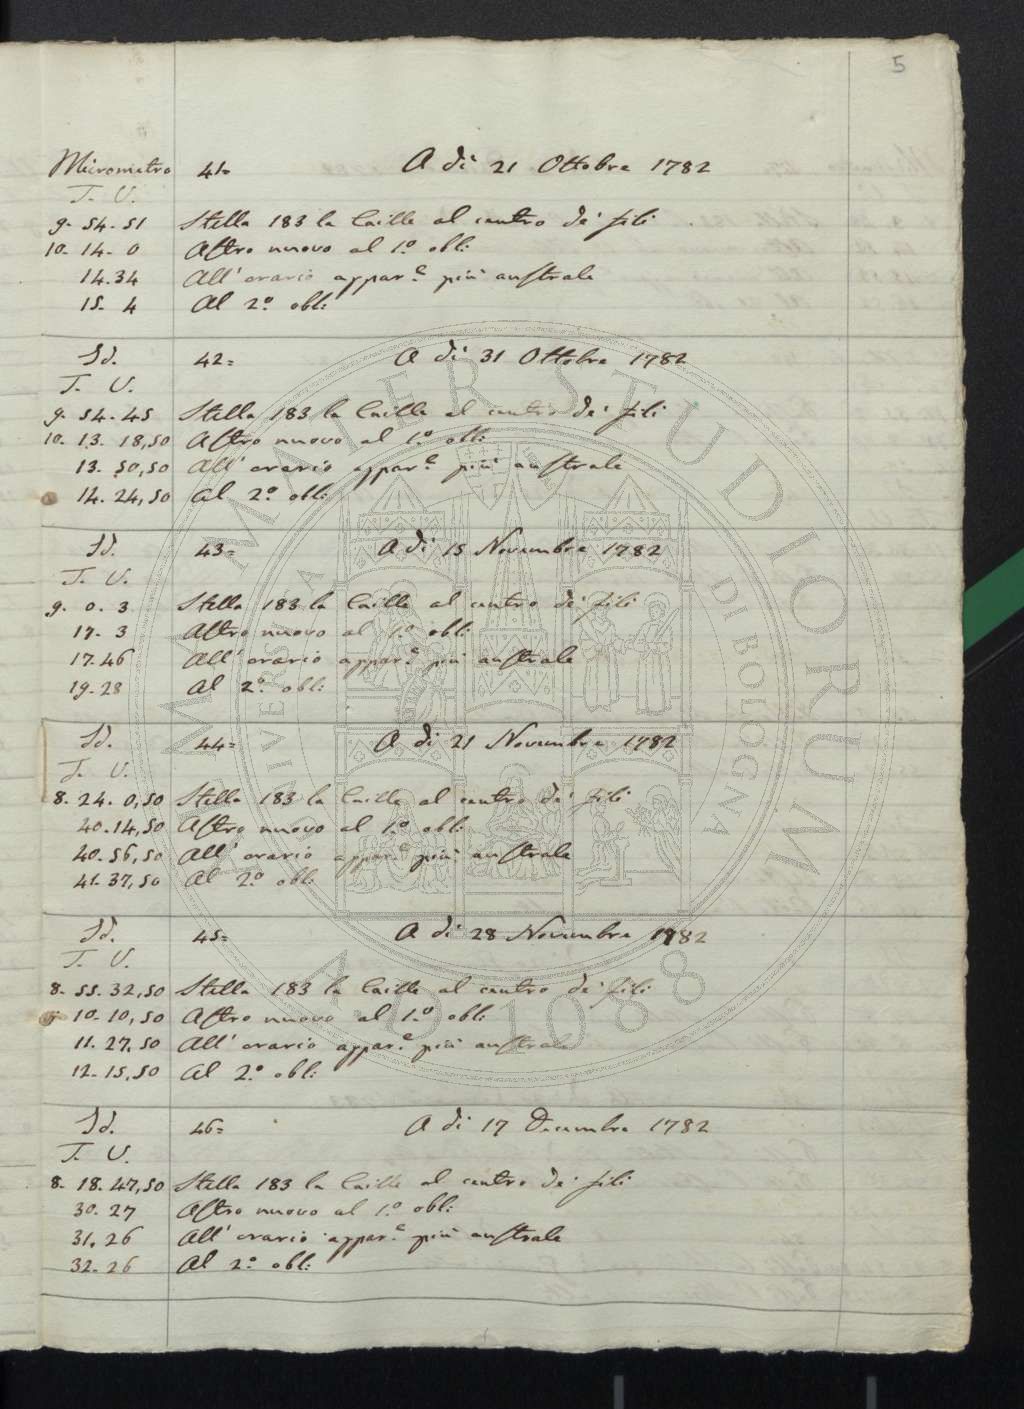 5
Micrometro 41= A dì 21 Ottobre 1782
T. V.
9. 54. 51 Stella 183 la Caille al centro de' fili
10. 14. 0 Astro nuovo al 1.o obli:
14. 34 All' orario appar.e più australe
15. 4 Al 2.o obli:
Id. 42= A dì 31 Ottobre 1782
T. V.
9. 54. 45 Stella 183 la Caille al centro de' fili
10. 13. 18,50 Astro nuovo al 1.o obli:
13. 50,50 All' orario appar.e più australe
14. 24,50 Al 2.o obli:
Id. 43= A dì 15 Novembre 1782
T. V.
9. 0. 3 Stella 183 la Caille al centro de' fili
17. 3 Astro nuovo al 1.o obli:
17. 46 All' orario appar.e più australe
19. 28 Al 2.o obli:
Id. 44= A dì 21 Novembre 1782
T. V.
8. 24. 0,50 Stella 183 la Caille al centro de' fili
40. 14,50 Astro nuovo al 1.o obli:
40. 56,50 All' orario appar.e più australe
41. 37,50 Al 2.o obli:
Id. 45= A dì 28 Novembre 1782
T. V.
8. 55. 32,50 Stella 183 la Caille al centro de' fili
9. 10. 10,50 Astro nuovo al 1.o obli:
11. 27,50 All' orario appar.e più australe
12. 15,50 Al 2.o obli:
Id. 46= A dì 17 Decembre 1782
T. V.
8. 18. 47,50 Stella 183 la Caille al centro de' fili
30. 27 Astro nuovo al 1.o obli:
31. 26 All' orario appar.e più australe
32. 26 Al 2.o obli:
ALMA MATER STUDIORUM
UNIVERSITÀ DI BOLOGNA
A.D. 1088